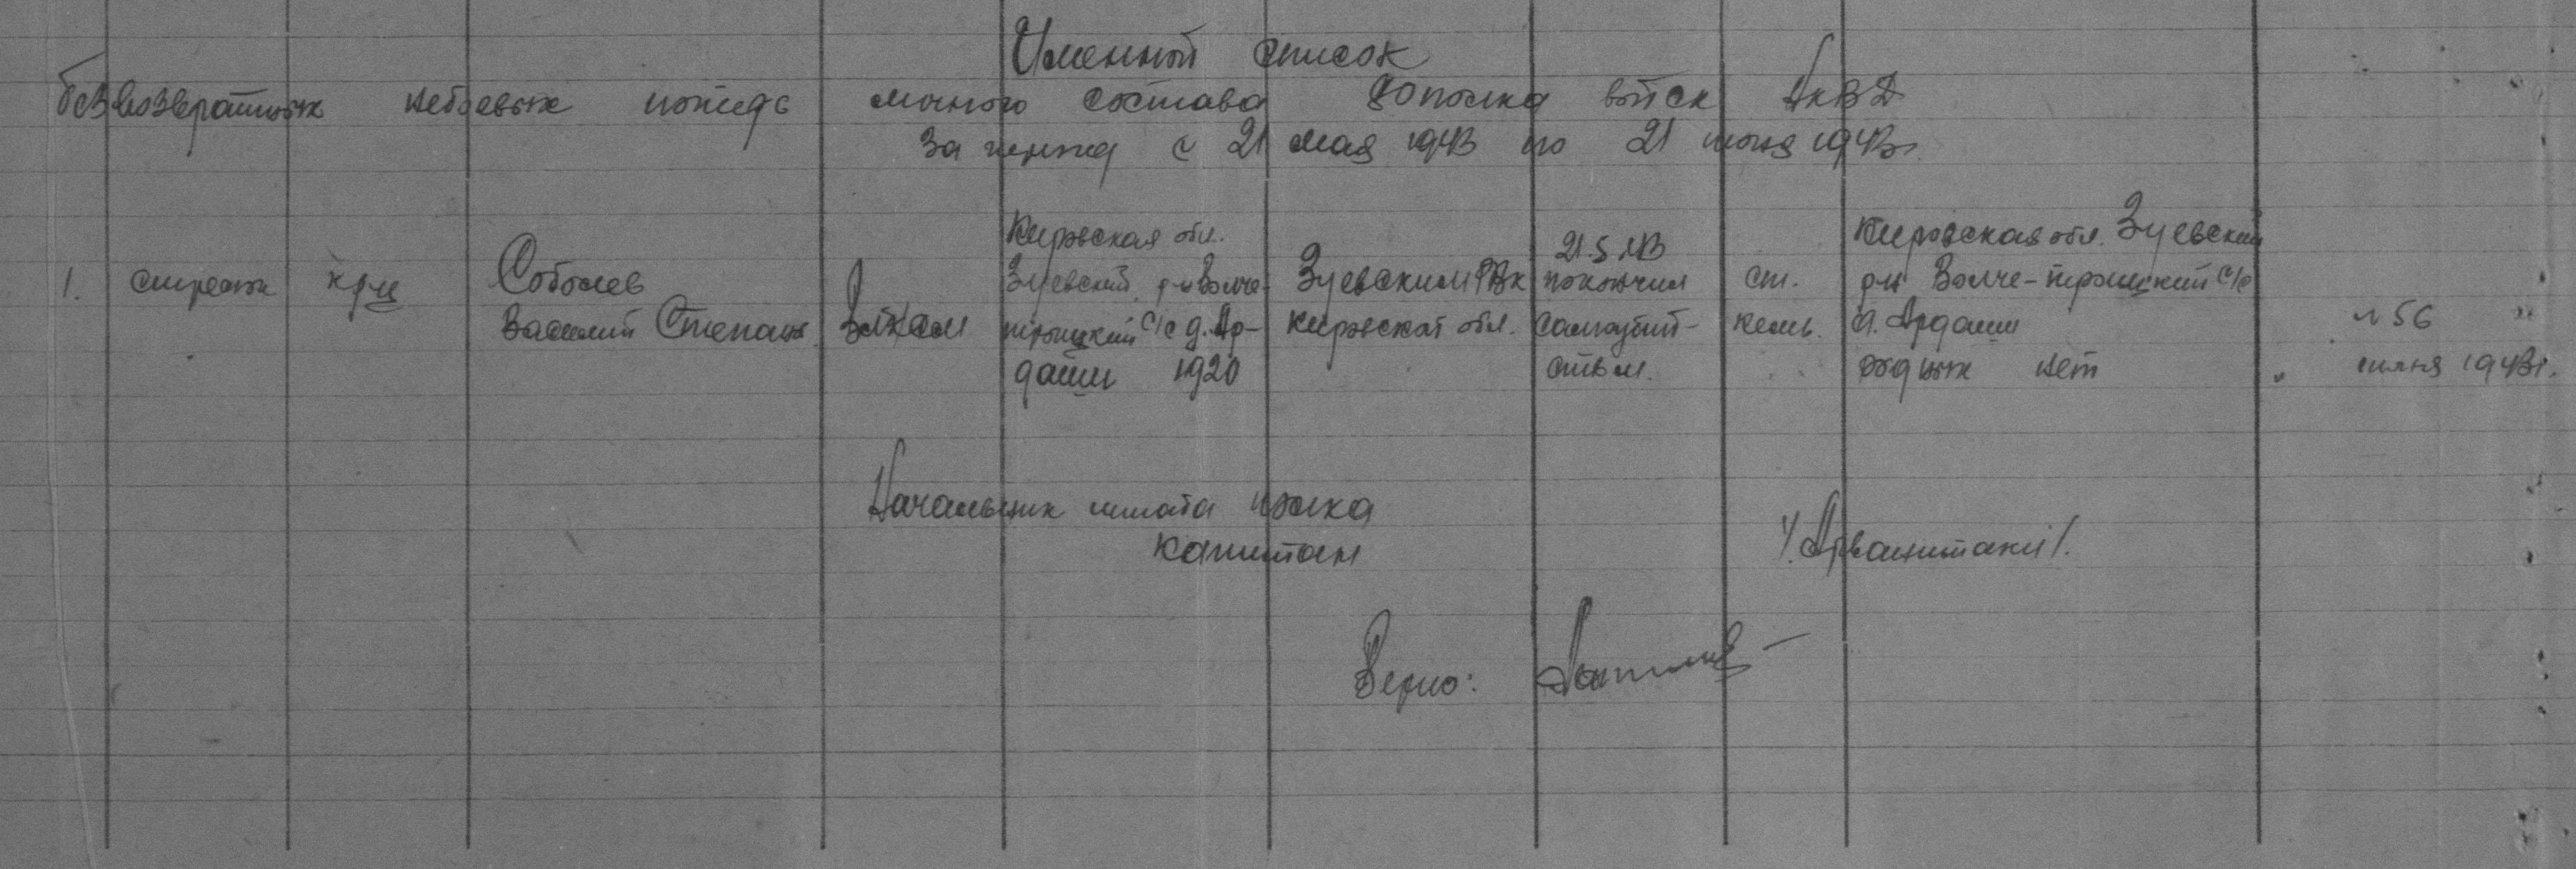 Именной список
безвозвратных небоевых потерь личного состава 80 полка войск НКВД
За период с 21 мая 1943 по 21 июня 1943г.
1. стрелок кр-ц Соболев Василий Степан. ВЛКСМ
Кировская обл.
Зуевский р-н Волче-
троицкий с/с д. Ар-
даши 1920
Зуевским РВК
Кировской обл.
21.5.43
покончил
самоубий-
ством.
ст.
Кемь.
Кировская обл. Зуевский
р-н Волче-троицкий с/с
д. Ардаши
родных нет
№ 56 "
" июня 1943г.
Начальник штаба полка
капитан /Арванитаки/.
Верно: